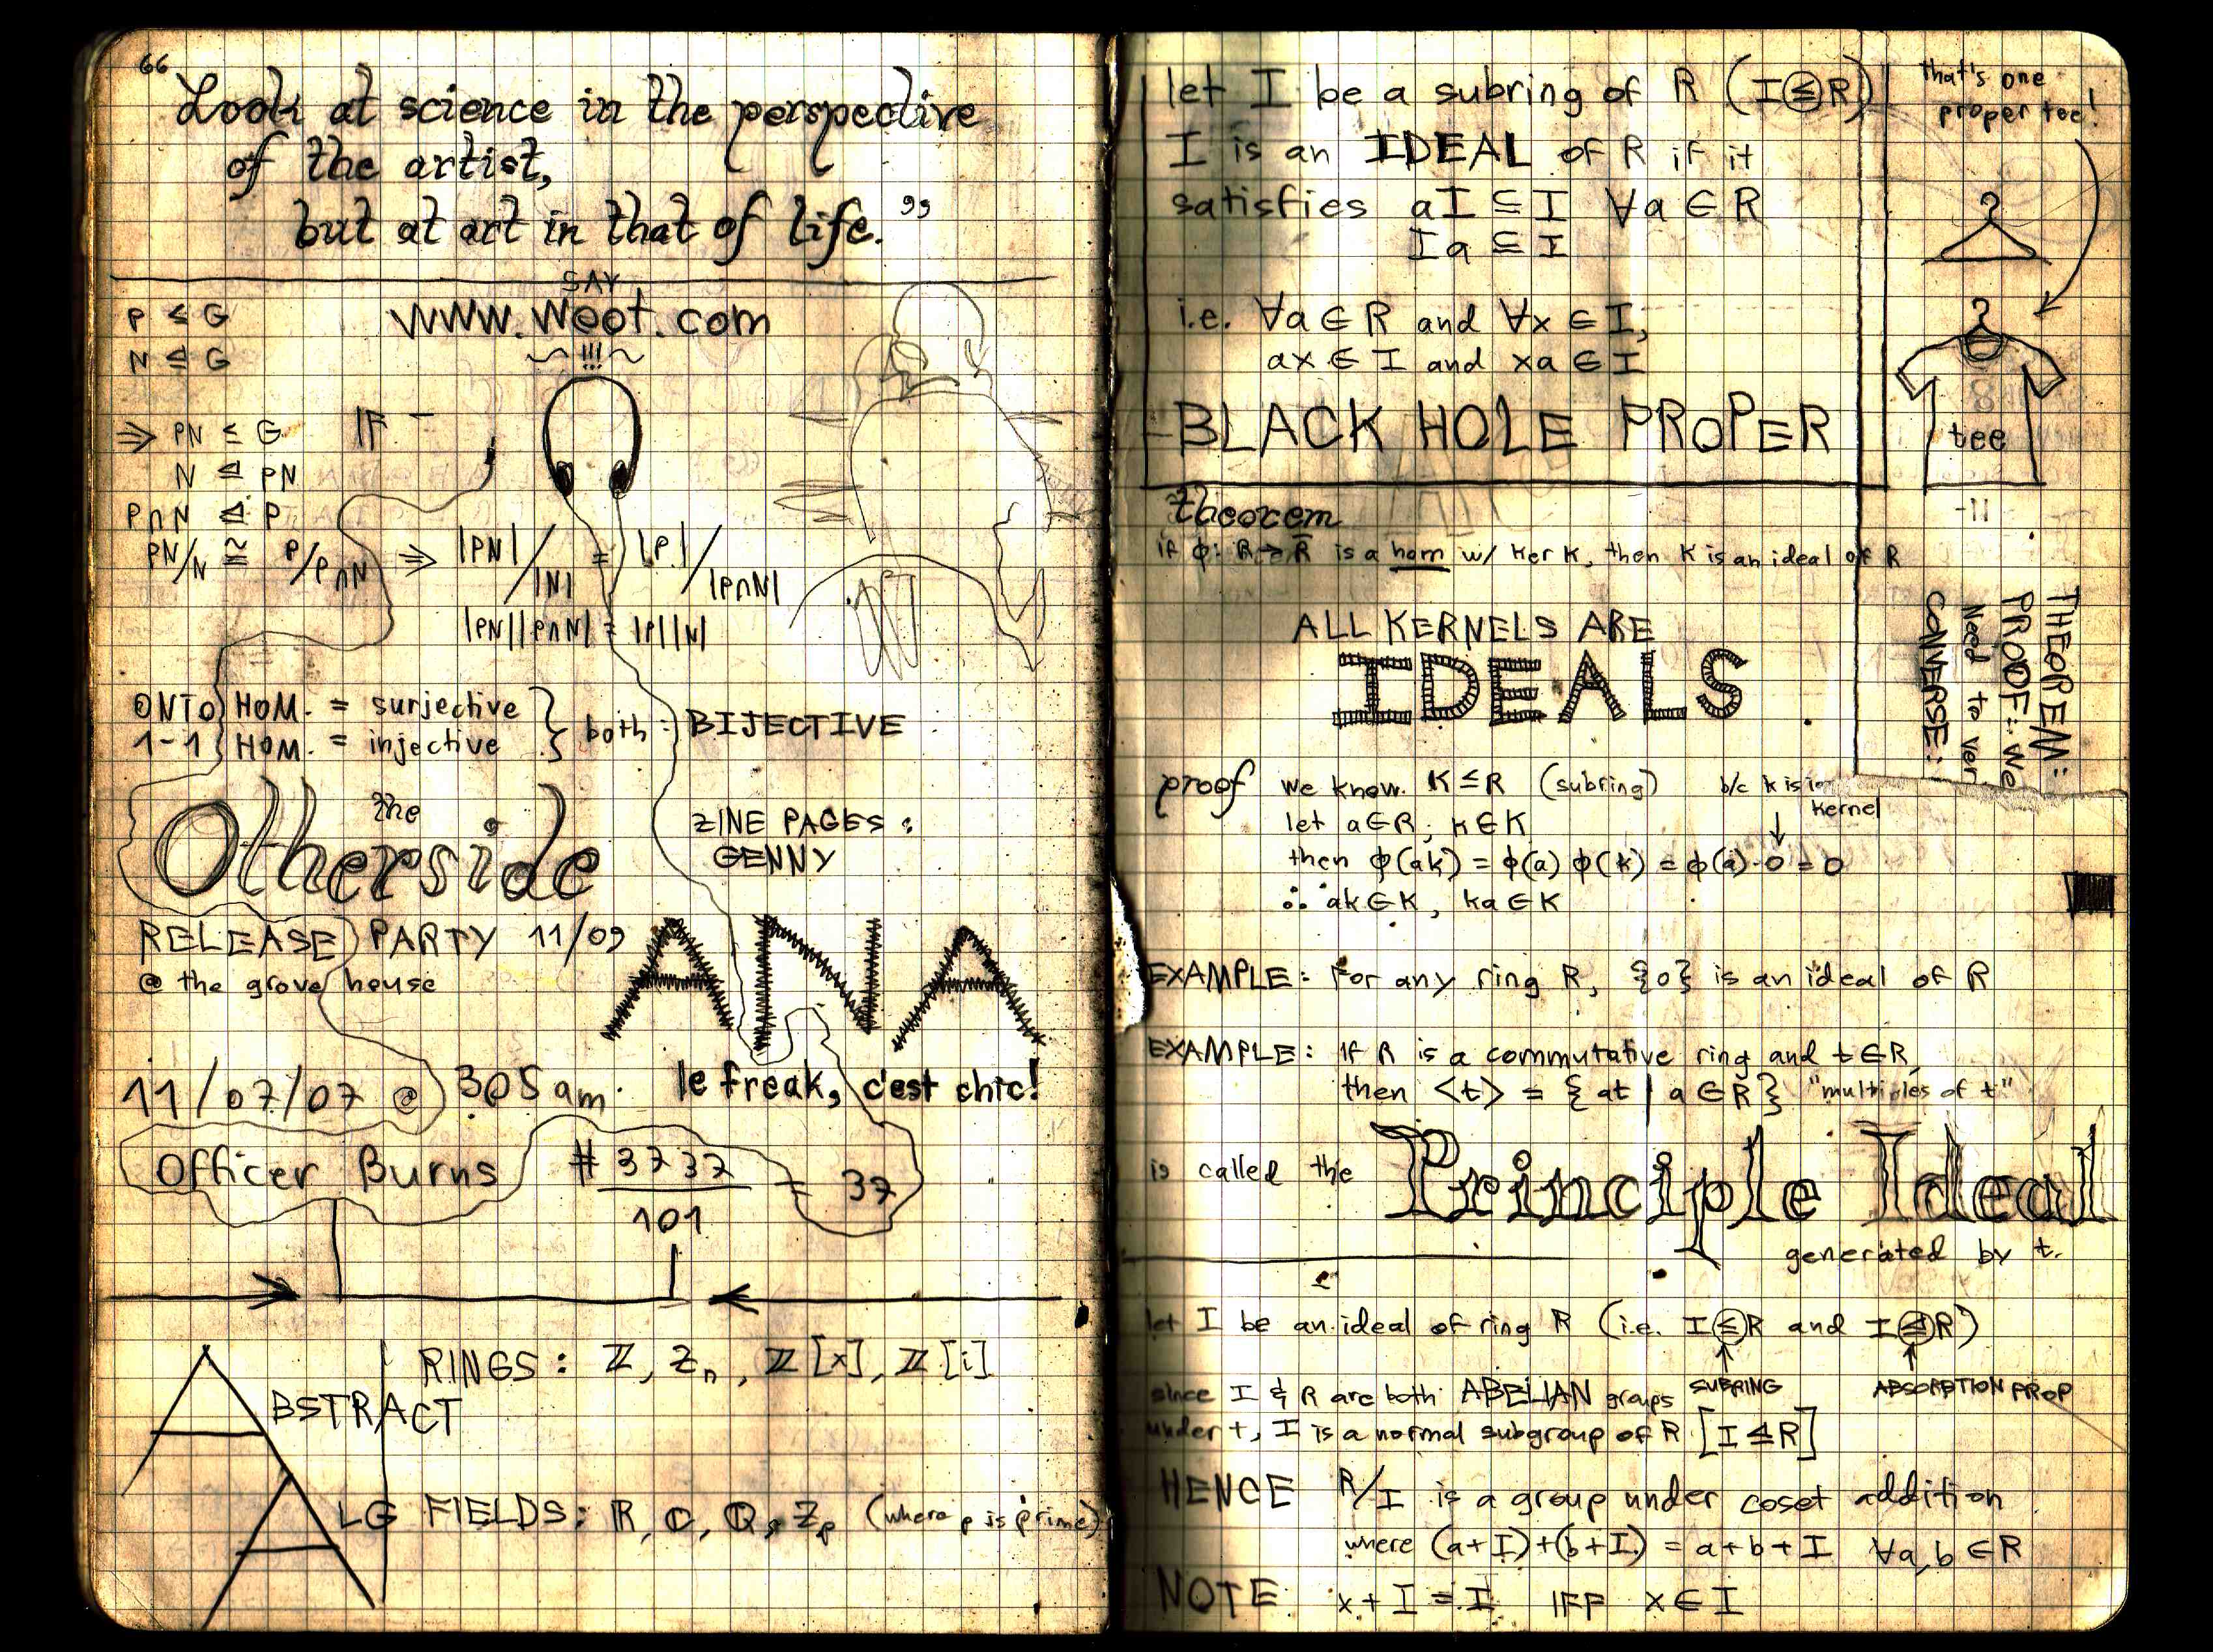 “Look at science in the perspective
of the artist,
but at art in that of life.”
SAY
www.woot.com
!!!
P ≤ G
N ⊴ G
⇒ PN ≤ G
IF –
N ⊴ PN
P∩N ⊴ P
PN/N ≅ P/P∩N ⇒ |PN|/|N| = |P|/|P∩N|
|PN||P∩N| = |P||N|
ONTO HOM. = surjective
1-1 HOM. = injective
both: BIJECTIVE
the
Otherside
ZINE PAGES:
GENNY
RELEASE PARTY 11/09
@ the grove house
ANA
11/07/07 @ 305 am.
le freak, c'est chic!
Officer Burns #3737/101 = 37
RINGS: ℤ, Zn, ℤ[x], ℤ[i]
ABSTRACT
ALG
FIELDS: ℝ, ℂ, ℚ, Zp (where p is prime)
let I be a subring of R (I ≤ R)
I is an IDEAL of R if it
satisfies aI ⊆ I ∀a ∈ R
Ia ⊆ I
i.e. ∀a ∈ R and ∀x ∈ I,
ax ∈ I and xa ∈ I
BLACK HOLE PROPER
that's one
proper tee!
tee
theorem
if φ: R → R̅ is a hom w/ ker K, then K is an ideal of R
ALL KERNELS ARE
IDEALS
THEOREM:
PROOF: We
Need to ver
CONVERSE:
proof we know K ≤ R (subring) b/c k is in
kernel
let a ∈ R, k ∈ K
then φ(ak) = φ(a) φ(k) = φ(a)·0 = 0
∴ ak ∈ K, ka ∈ K
EXAMPLE: For any ring R, {0} is an ideal of R
EXAMPLE: If R is a commutative ring and t ∈ R,
then <t> = {at | a ∈ R} "multiples of t"
is called the Principle Ideal
generated by t.
let I be an ideal of ring R (i.e. I ≤ R and I ⊴ R)
SUBRING
ABSORPTION PROP
since I & R are both ABELIAN groups
under +, I is a normal subgroup of R [I ⊴ R]
HENCE R/I is a group under coset addition
where (a+I)+(b+I) = a+b+I ∀a,b ∈ R
NOTE x+I = I IFF x ∈ I